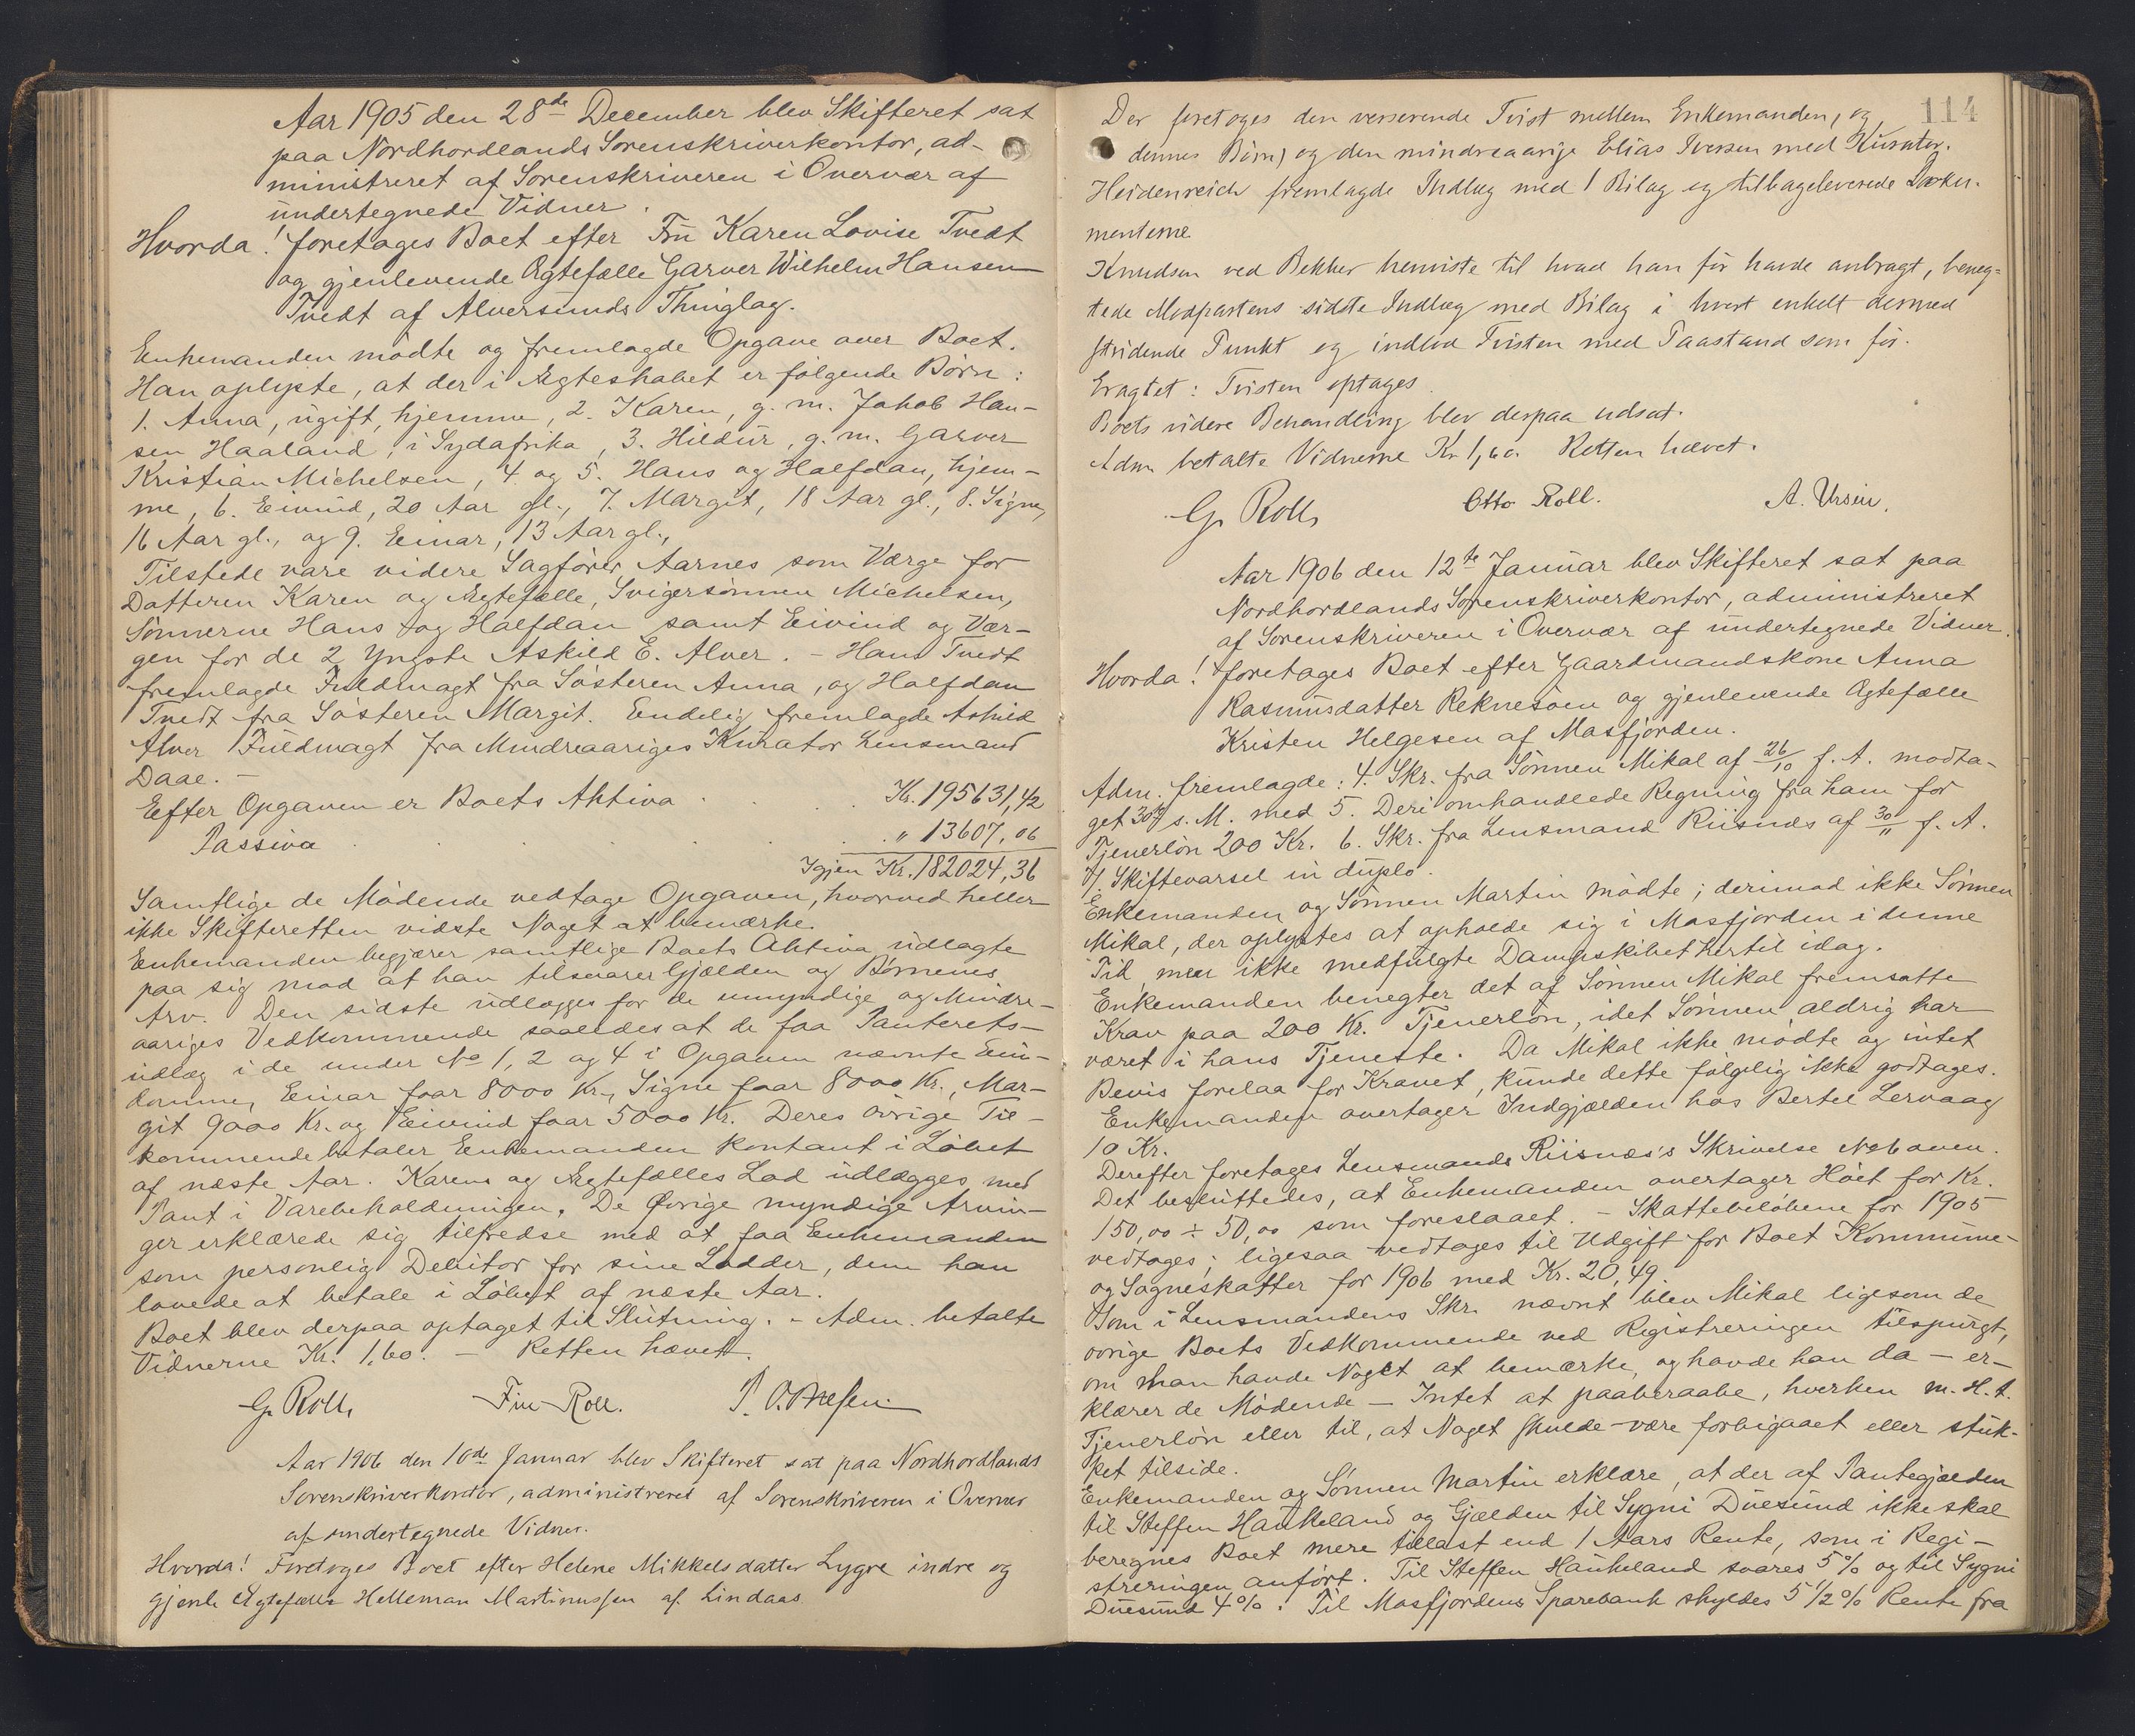 Aar 1905 den 28de December blev Skifteret sat
paa Nordhordlands Sorenskriverkontor, ad-
ministreret af Sorenskriveren i Overvær af
undertegnede Vidner.
Hvorda! foretages Boet efter Fru Karen Lovise Tvedt
og gjenlevende Ægtefælle Garver Wilhelm Hansen
Tvedt af Alversunds Thinglag.
Enkemanden mødte og fremlagde Opgave over Boet.
Han oplyste, at der i Ægteskabet er følgende Børn:
1. Anna, ugift, hjemme, 2. Karen, g. m. Jakob Han-
sen Haaland, i Sydafrika, 3. Hildur, g. m. Garver
Kristian Michelsen, 4. og 5. Hans og Halfdan, hjem-
me, 6. Eivind, 20 Aar gl., 7. Margit, 18 Aar gl., 8. Signe,
16 Aar gl., og 9. Einar, 13 Aar gl.,
Tilstede vare videre Sagfører Aarnes som Værge for
Datteren Karen og Ægtefælle, Svigersønnen Michelsen,
Sønnerne Hans og Halfdan samt Eivind og Vær-
gen for de 2 Yngste Askild E. Alver. – Hans Tvedt
fremlagde Fuldmagt fra Søsteren Anna, og Halfdan
Tvedt fra Søsteren Margit. Endelig fremlagde Askild
Alver Fuldmagt fra Mindreaariges Kurator Lensmand
Daae. –
Efter Opgaven er Boets Aktiva . . . Kr. 195631,42
Passiva . . . . . . " 13607,06
Igjen Kr. 182024,36
Samtlige de Mødende vedtage Opgaven, hvorved heller
ikke Skifteretten vidste Noget at bemærke.
Enkemanden begjærer samtlige Boets Aktiva udlagte
paa sig mod at han tilsvarer Gjælden og Børnenes
Arv. Den sidste udlægges for de umyndige og Mindre-
aariges Vedkommende saaledes at de faa Panterets-
udlæg i de under No 1, 2 og 4 i Opgaven nævnte Ein-
domme, Einar faar 8000 Kr., Signe faar 8000 Kr., Mar-
git 9000 Kr. og Eivind faar 5000 Kr. Deres øvrige Til-
kommende betaler Enkemanden kontant i Løbet
af næste Aar. Karens og Ægtefælles Lod udlægges med
Pant i Varebeholdningen. De øvrige myndige Arvin-
ger erklærede sig tilfredse med at faa Enkemanden
som personlig Debitor for sine Lodder, dem han
lovede at betale i Løbet af næste Aar.
Boet blev derpaa optaget til Slutning. – Adm. betalte
Vidnerne Kr. 1,60. – Retten hævet.
G. Roll, Fin Roll.
Aar 1906 den 10de Januar blev Skifteret sat paa Nordhordlands
Sorenskriverkontor, administreret af Sorenskriveren i Overvær
af undertegnede Vidner.
Hvorda! Foretoges Boet efter Helene Mikkelsdatter Lygre indre og
gjenl. Ægtefælle Helleman Martinussen af Lindaas
114
Der foretoges den verserende Tvist mellem Enkemanden, og
dennes Børn, og den mindreaarige Elias Iversen med Kurator.
Heidenreich fremlagde Indlæg med 1 Bilag og tilbageleverede Doku-
menterne
Knudsen ved Bekker henviste til hvad han før havde anbragt, beneg-
tede Modpartens sidste Indlæg med Bilag i hvert enkelt dermed
stridende Punkt og indlod Tvisten med Paastand som før.
Eragtet: Tvisten optages.
Boets videre Behandling blev derpaa udsat.
Adm betalte Vidnerne Kr 1,60. Retten hævet.
G. Roll, Otto Roll. A. Ursin.
Aar 1906 den 12te Januar blev Skifteret sat paa
Nordhordlands Sorenskriverkontor, administreret
af Sorenskriveren i Overvær af undertegnede Vidner.
Hvorda! foretages Boet efter Gaardmandskone Anna
Rasmusdatter Reknesøen og gjenlevende Ægtefælle
Kristen Helgesen af Masfjorden.
Adm. fremlagde: 4. Skr. fra Sønnen Mikal af 26/10 f. A. modta-
get 30/ s. M. med 5. Deri omhandlede Regning fra ham for
Tjenerløn 200 Kr. 6. Skr. fra Lensmand Riisnæs af 30/11 f. A.
7. Skiftevarsel in duplo.
Enkemanden og Sønnen Martin mødte; derimod ikke Sønnen
Mikal, der oplystes at opholde sig i Masfjorden i denne
Tid, men ikke medfulgte Dampskibet hertil idag.
Enkemanden benegter det af Sønnen Mikal fremsatte
Krav paa 200 Kr. Tjenerløn, idet Sønnen aldrig har
været i hans Tjeneste. Da Mikal ikke mødte og intet
Bevis forelaa for Kravet, kunde dette følgelig ikke godtages.
Enkemanden overtager Indgjælden hos Bertel Lervaag
10 Kr.
Derefter foretages Lensmands Riisnæs's Skrivelse No 6 oven.
Det besluttedes, at Enkemanden overtager Høet for Kr.
150,00 ÷ 50,00 som foreslaaet. – Skattebeløbene for 1905
vedtoges; ligesaa vedtages til Udgift for Boet Kommune-
og Sogneskatter for 1906 med Kr. 20,49.
Som i Lensmandens Skr. nævnt blev Mikal ligesom de
øvrige Boets Vedkommende ved Registreringen tilspurgt,
om man havde Noget at bemærke, og havde han da – er-
klærer de Mødende – Intet at paaberaabe, hverken m. H. t.
Tjenerløn eller til, at Noget skulde være forbigaaet eller stuk-
ket tilside.
Enkemanden og Sønnen Martin erklære, at der af Pantegjælden
til Steffen Haukeland og Gjælden til Sygni Duesund ikke skal
beregnes Boet mere tillast end 1 Aars Rente, som i Regi-
streringen anført. Til Steffen Haukeland svares 5% og til Sygni
Duesund 4%. Til Masfjordens Sparebank skyldes 5 1/2 % Rente fra